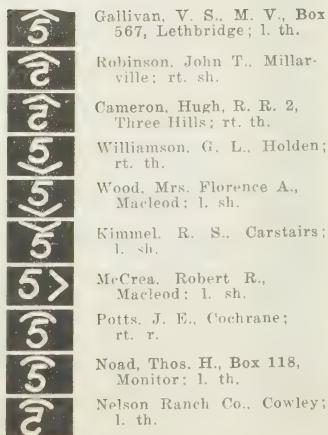 Gallivan, V. S., M. V., Box
567, Lethbridge; l. th.
Robinson, John T., Millar-
ville; rt. sh.
Cameron, Hugh, R. R. 2,
Three Hills; rt. th.
Williamson, G. L., Holden;
rt. th.
Wood, Mrs. Florence A.,
Macleod; l. sh.
Kimmel, R. S., Carstairs;
l. sh.
McCrea, Robert R.,
Macleod; l. sh.
Potts, J. E., Cochrane;
rt. r.
Noad, Thos. H., Box 118,
Monitor; l. th.
Nelson Ranch Co., Cowley;
l. th.